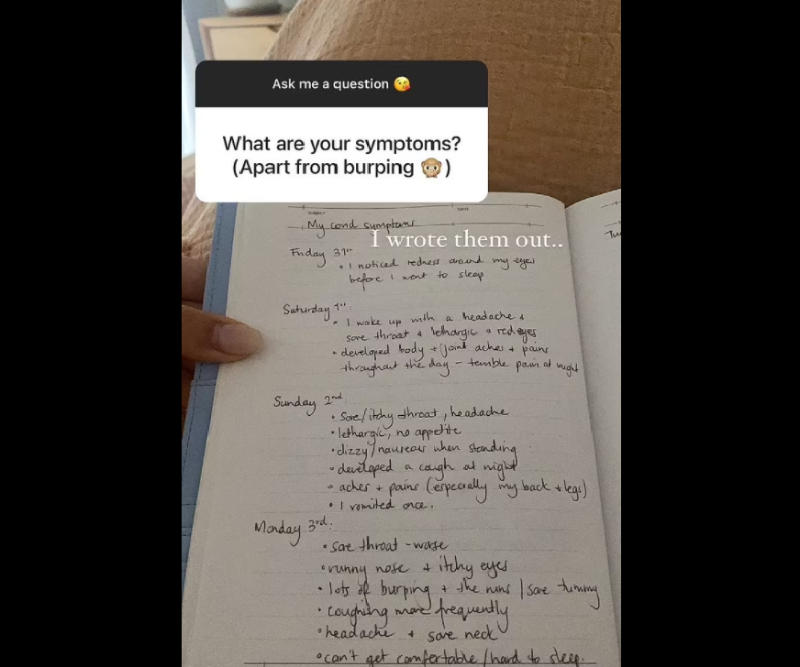 Ask me a question 😘
What are your symptoms?
(Apart from burping 🙊)
SUBJECT
DATE
My covid symptoms
I wrote them out..
Friday 31st
• I noticed redness around my eyes
before I went to sleep
Saturday 1st:
• I wake up with a headache +
sore throat + lethargic + red eyes
• developed body + joint aches + pains
throughout the day - terrible pain at night
Sunday 2nd:
• Sore/itchy throat, headache
• lethargic, no appetite
• dizzy/nauseas when standing
• developed a cough at night
• aches + pains (especially my back + legs)
• I vomited once.
Monday 3rd:
• sore throat - worse
• runny nose + itchy eyes
• lots of burping + the runs / sore tummy
• coughing more frequently
• headache + sore neck
• can't get comfortable/hard to sleep.